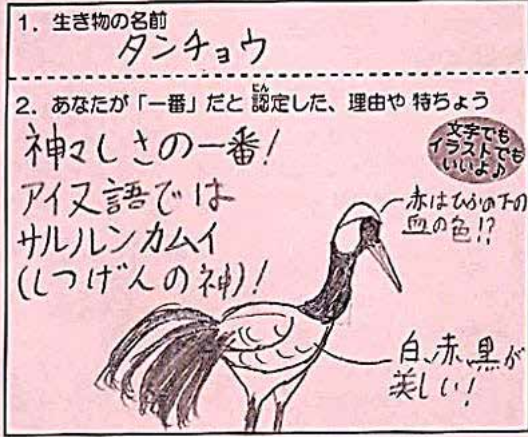 1. 生き物の名前
タンチョウ
2. あなたが「一番」だと認定した、理由や特ちょう
にん
神々しさの一番!
文字でも
イラストでも
いいよ♪
アイヌ語では
サルルンカムイ
(しつげんの神)!
赤はひふの下の
血の色!?
白、赤、黒が
美しい!